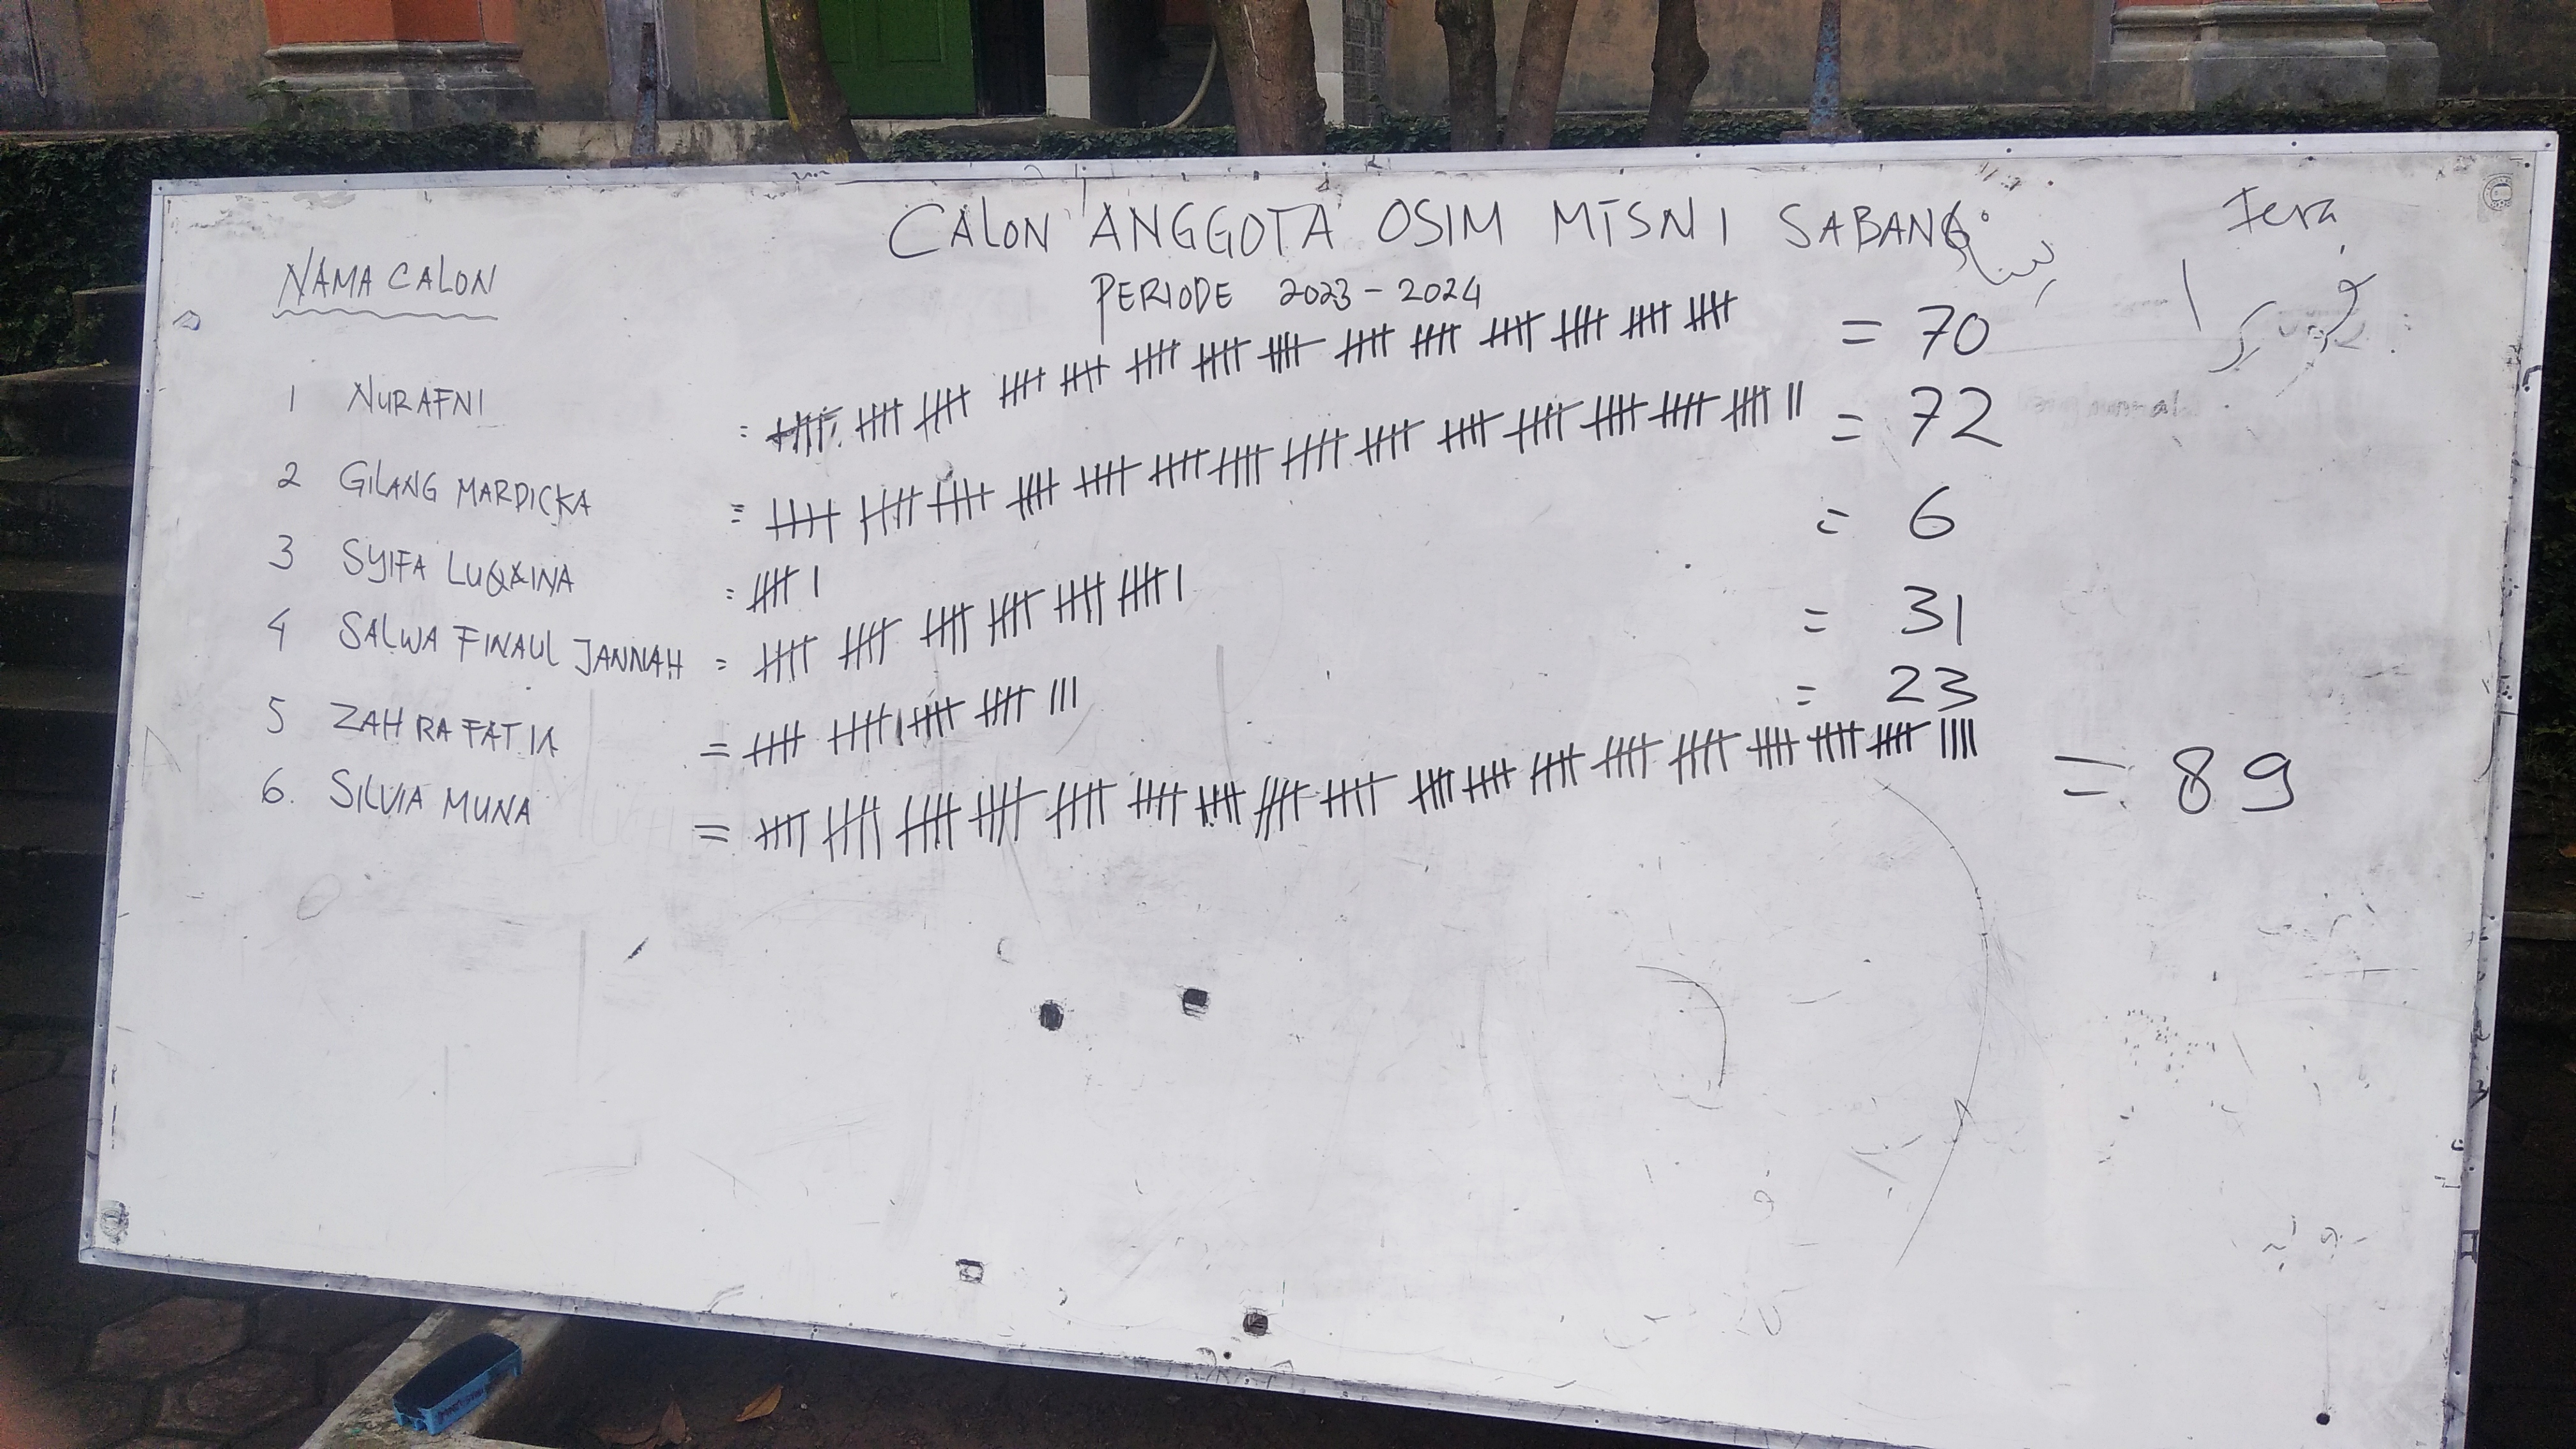 CALON ANGGOTA OSIM MTSN 1 SABANG
Fera
PERIODE 2023 - 2024
NAMA CALON
1 NURAFNI = 70
2 GILANG MARDICKA = = 72
3 SYIFA LUQAINA = = 6
4 SALWA FINAUL JANNAH = = 31
5 ZAHRA FATIA = = 23
6. SILVIA MUNA = = 89